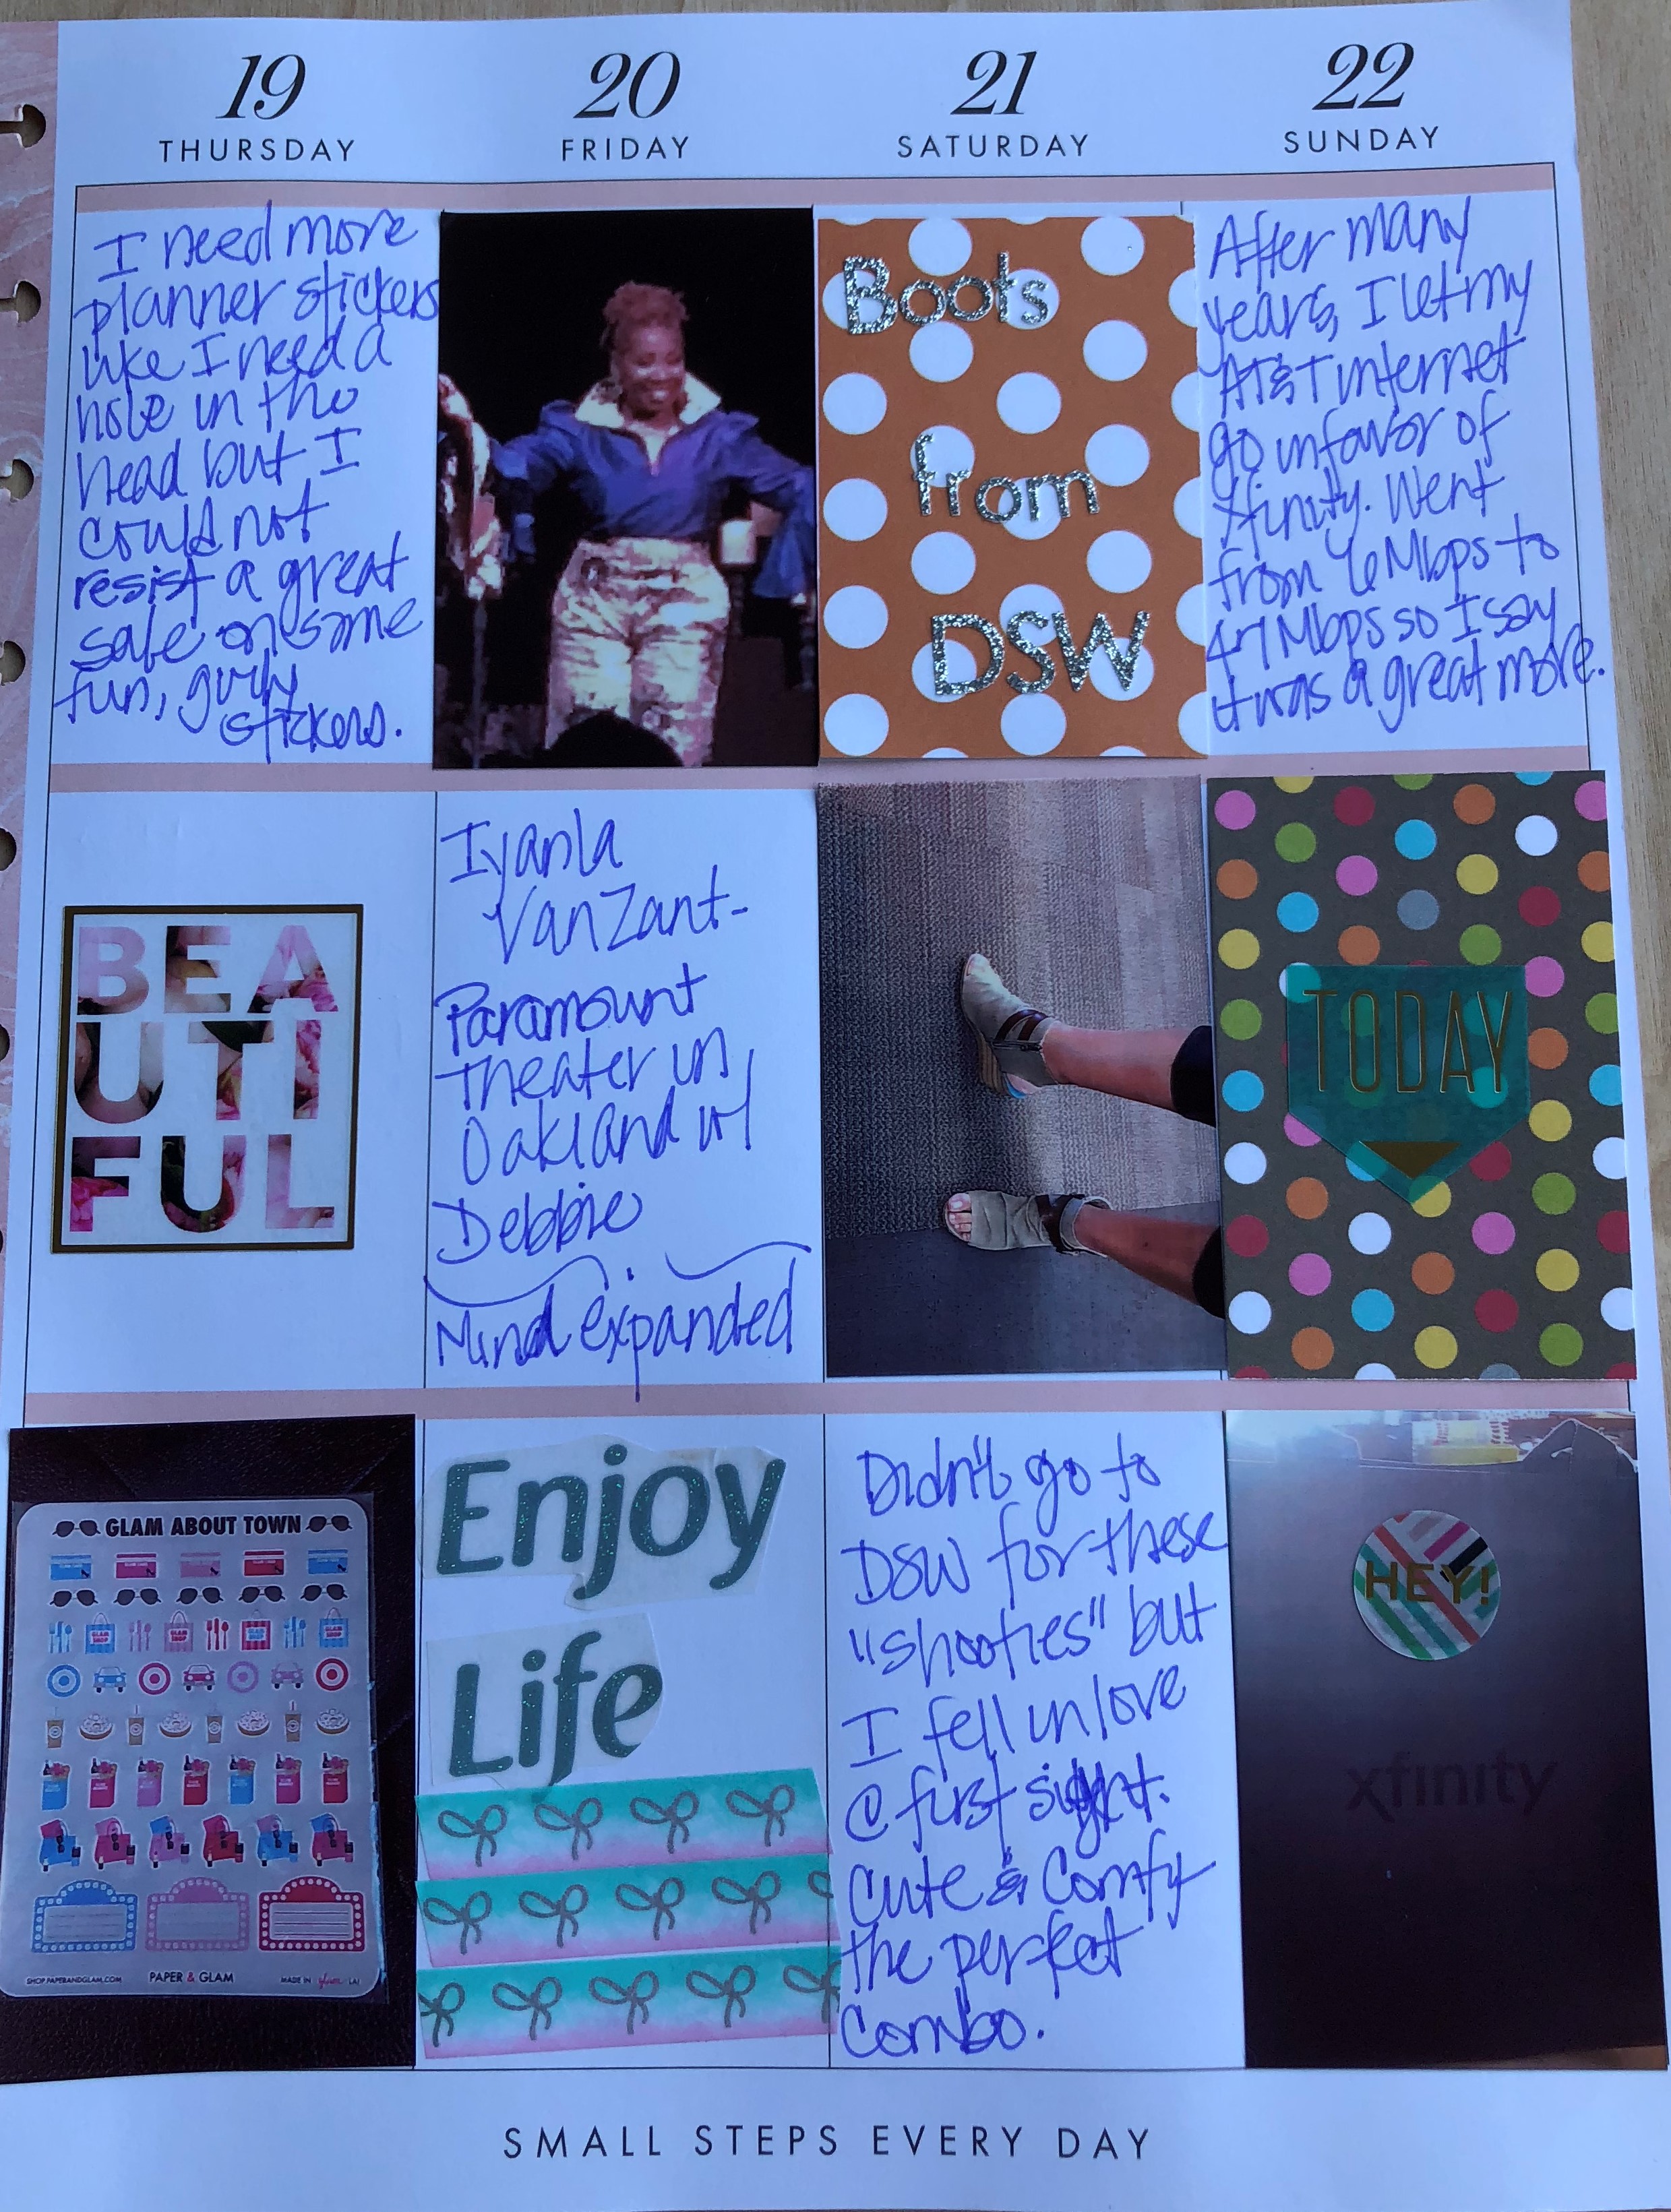 19
THURSDAY
20
FRIDAY
21
SATURDAY
22
SUNDAY
I need more
planner stickers
like I need a
hole in the
head but I
could not
resist a great
sale on some
fun, girly
stickers.
BEA
UTI
FUL
GLAM ABOUT TOWN
GLAM SHOP
GLAM SHOP
GLAM SHOP
GLAM SHOP
SHOP.PAPERANDGLAM.COM
PAPER & GLAM
MADE IN glam LA!
Iyanla
VanZant-
Paramount
Theater in
Oakland w/
Debbie
Mind expanded
Enjoy
Life
Boots
from
DSW
Didn't go to
DSW for these
"shooties" but
I fell in love
@ first sight.
Cute & Comfy
the perfect
combo.
After many
years, I let my
AT&T internet
go in favor of
Xfinity. Went
from 6 Mbps to
47 Mbps so I say
it was a great move.
TODAY
HEY!
xfinity
SMALL STEPS EVERY DAY